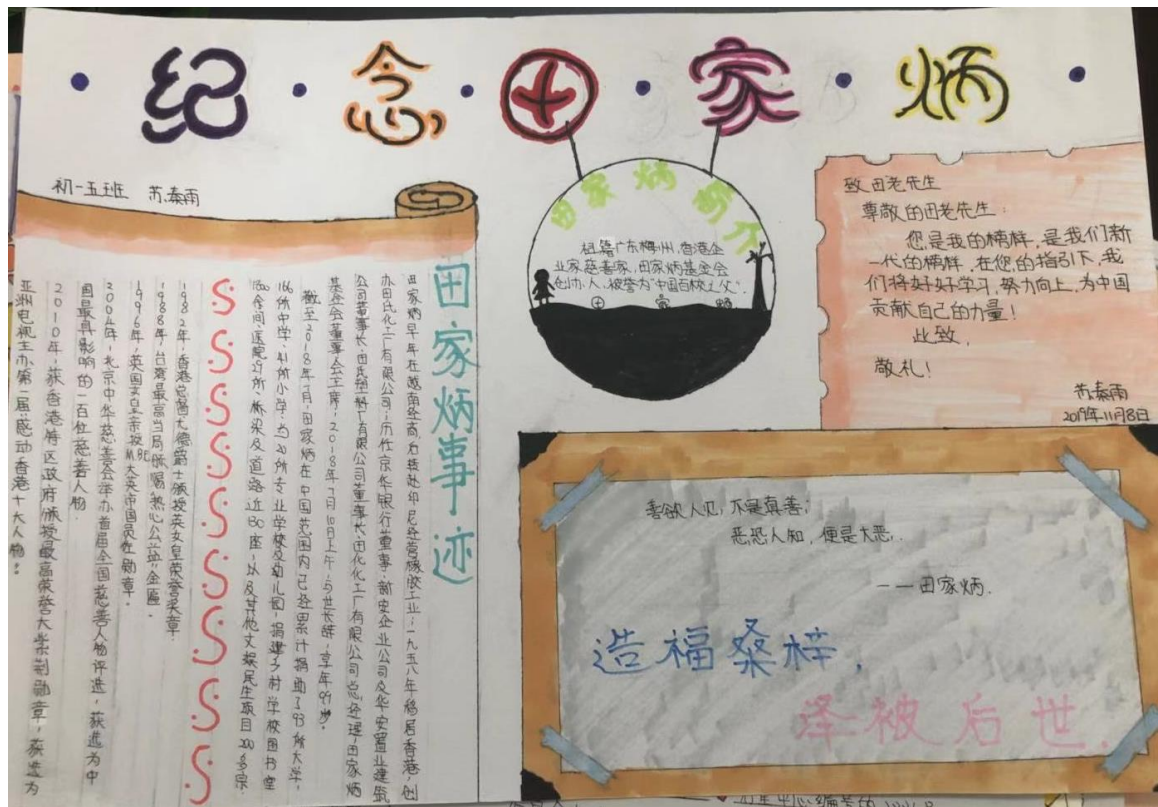 纪·念·田·家·炳
初一五班 苏泰雨
田家炳事迹
田家炳早年在越南经商,后转赴印尼经营橡胶工业;一九五八年移居香港,创
办田氏化工厂有限公司;历任京华银行董事、新安企业公司及华安置业建筑
公司董事长、田氏塑料厂有限公司董事长、田化化工厂有限公司总经理、田家炳
基金会董事会主席,2018年7月10日上午,与世长辞,享年99岁。
截至2018年7月,田家炳在中国范围内已经累计捐助了93所大学,
166所中学,41所小学,约20所专业学校及幼儿园,捐建乡村学校图书室
1800余间,医院29所,桥梁及道路近130座,以及其他文娱民生项目200多宗.
SSSSSSSSS
1982年,香港总督尤德爵士颁授英女皇荣誉奖章.
1988年,台湾最高当局颁赐"热心公益"金匾.
1996年,英国女皇亲授MBE大英帝国员佐勋章.
2004年,北京中华慈善会举办首届全国慈善人物评选,获选为中
国最具影响的一百位慈善人物.
2010年,获香港特区政府颁授最高荣誉大紫荆勋章,获选为
亚洲电视主办第一届"感动香港十大人物".
田家炳简介
祖籍广东梅州,香港企
业家慈善家,田家炳基金会
创办人,被誉为"中国百校之父".
田 家 炳
致田老先生
尊敬的田老先生:
您是我的榜样,是我们新
一代的榜样,在您的指引下,我
们将好好学习,努力向上,为中国
贡献自己的力量!
此致,
敬礼!
苏泰雨
2019年11月8日
善欲人见,不是真善;
恶恐人知,便是大恶.
——田家炳.
造福桑梓,
泽被后世.